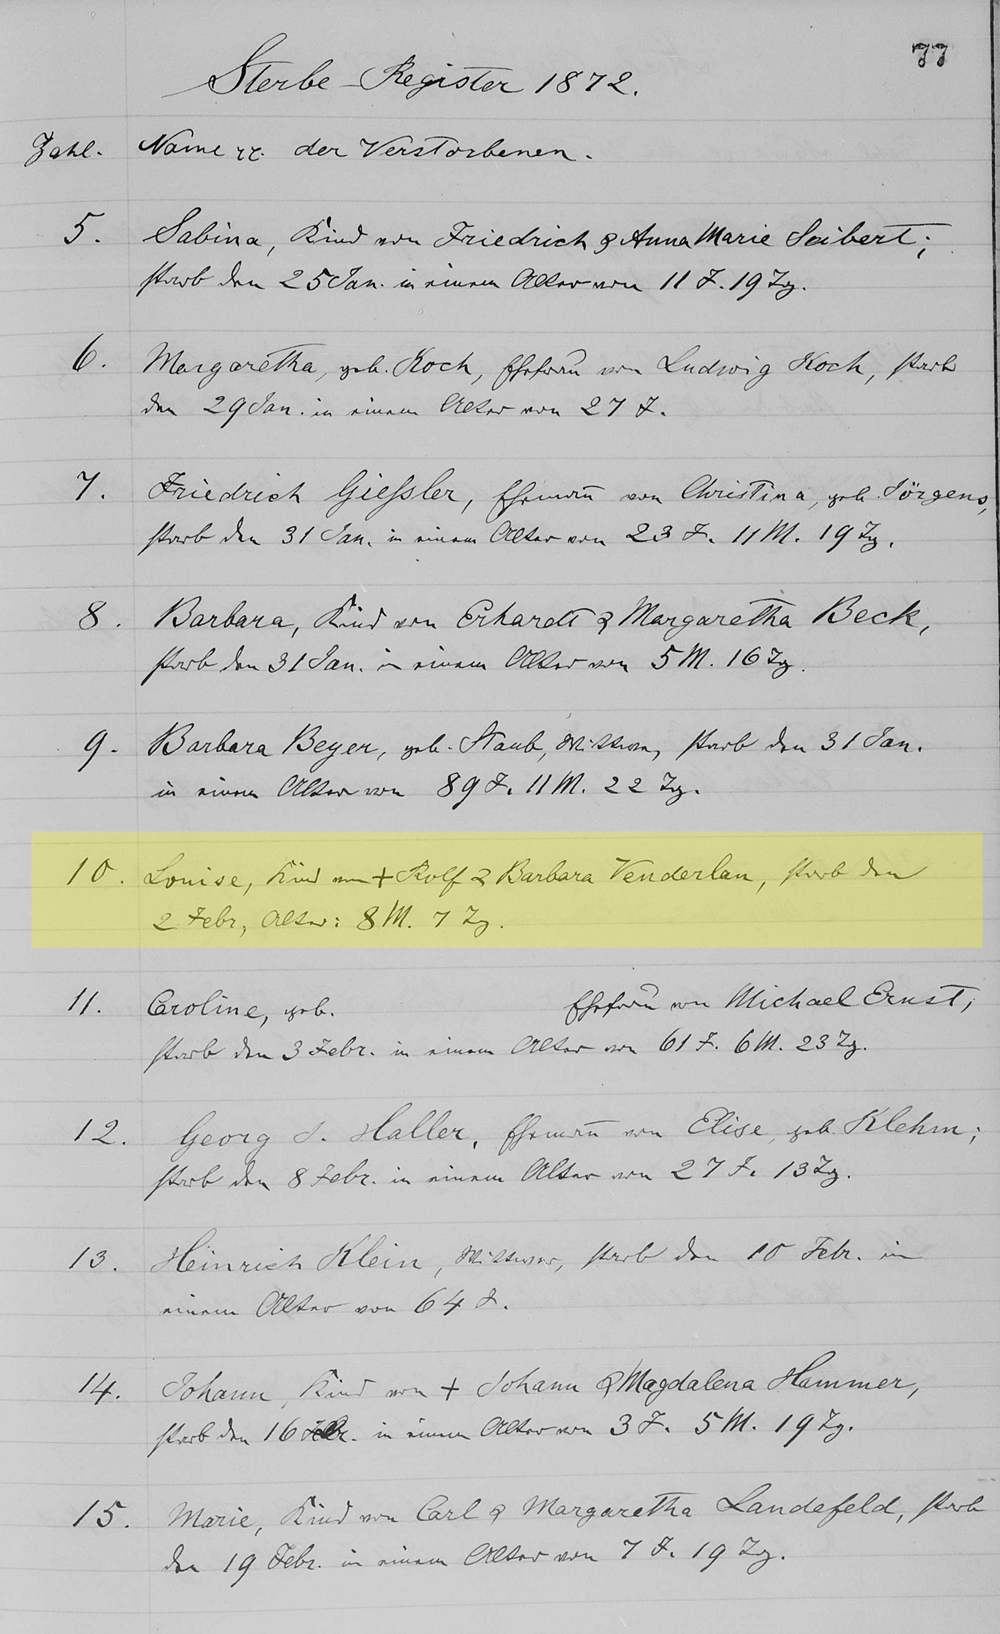 77
Sterbe-Register 1872.
Zahl. Name rc. der Verstorbenen.
5. Sabina, Kind von Friedrich & Anna Marie Seibert;
starb den 25 Jan. in einem Alter von 11 J. 19 Tg.
6. Margaretha, geb. Koch, Ehefrau von Ludwig Koch, starb
den 29 Jan. in einem Alter von 27 J.
7. Friedrich Gießler, Ehemañ von Christina, geb. Jörgens,
starb den 31 Jan. in einem Alter von 23 J. 11 M. 19 Tg.
8. Barbara, Kind von Erhardt & Margaretha Beck,
starb den 31 Jan. in einem Alter von 5 M. 16 Tg.
9. Barbara Beyer, geb. Staub, Wittwe, starb den 31 Jan.
in einem Alter von 89 J. 11 M. 22 Tg.
10. Louise, Kind von + Rolf & Barbara Venderlan, starb den
2 Febr, Alter: 8 M. 7 Tg.
11. Caroline, geb. Ehefrau von Michael Ernst;
starb den 3 Febr. in einem Alter von 61 J. 6 M. 23 Tg.
12. Georg J. Haller, Ehemañ von Elise, geb. Klehm;
starb den 8 Febr. in einem Alter von 27 J. 13 Tg.
13. Heinrich Klein, Wittwer, starb den 10 Febr. in
einem Alter von 64 J.
14. Johann, Kind von + Johann & Magdalena Hammer,
starb den 16 Febr. in einem Alter von 3 J. 5 M. 19 Tg.
15. Marie, Kind von Carl & Margaretha Landefeld, starb
den 19 Febr. in einem Alter von 7 J. 19 Tg.